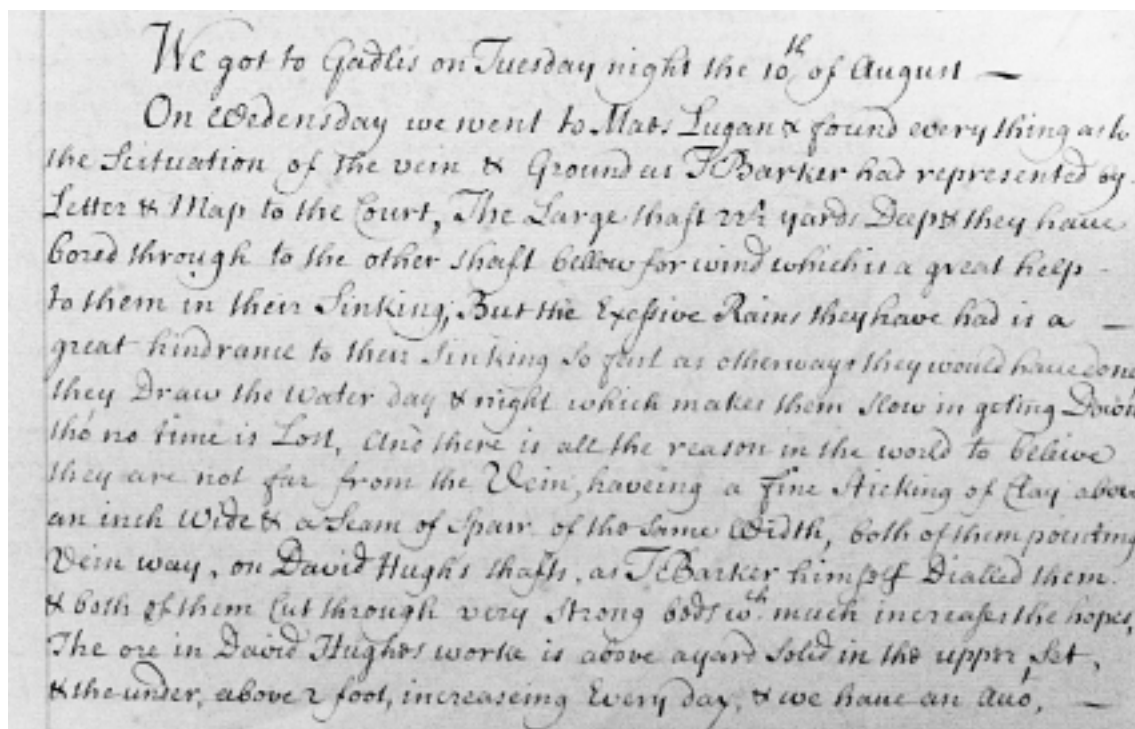 We got to Gadlis on Tuesday night the 10th of August —
On Wedensday we went to Maes Lugan & found every thing as to
the Scituation of the vein & Ground as T Barker had represented by
Letter & Map to the Court, The Large shaft 22½ yards Deep & they have
bored through to the other shaft bellow for wind which is a great help -
to them in their Sinking, But the Exessive Rains they have had is a —
great hindrance to their Sinking so fast as otherways they would have done
they Draw the Water day & night which makes them slow in geting Down
tho' no time is Lost, And there is all the reason in the world to beleive
they are not far from the Vein, haveing a fine Sticking of Clay above
an inch Wide & a Seam of Sparr of the Same Width, both of them pointing
Vein way, on David Hughs shafts, as T Barker himself Dialled them.
& both of them Cut through very strong beds wch. much increases the hopes,
The ore in David Hughes worke is above a yard Solid in the upper Set,
& the under, above 2 foot, increaseing Every day, & we have an